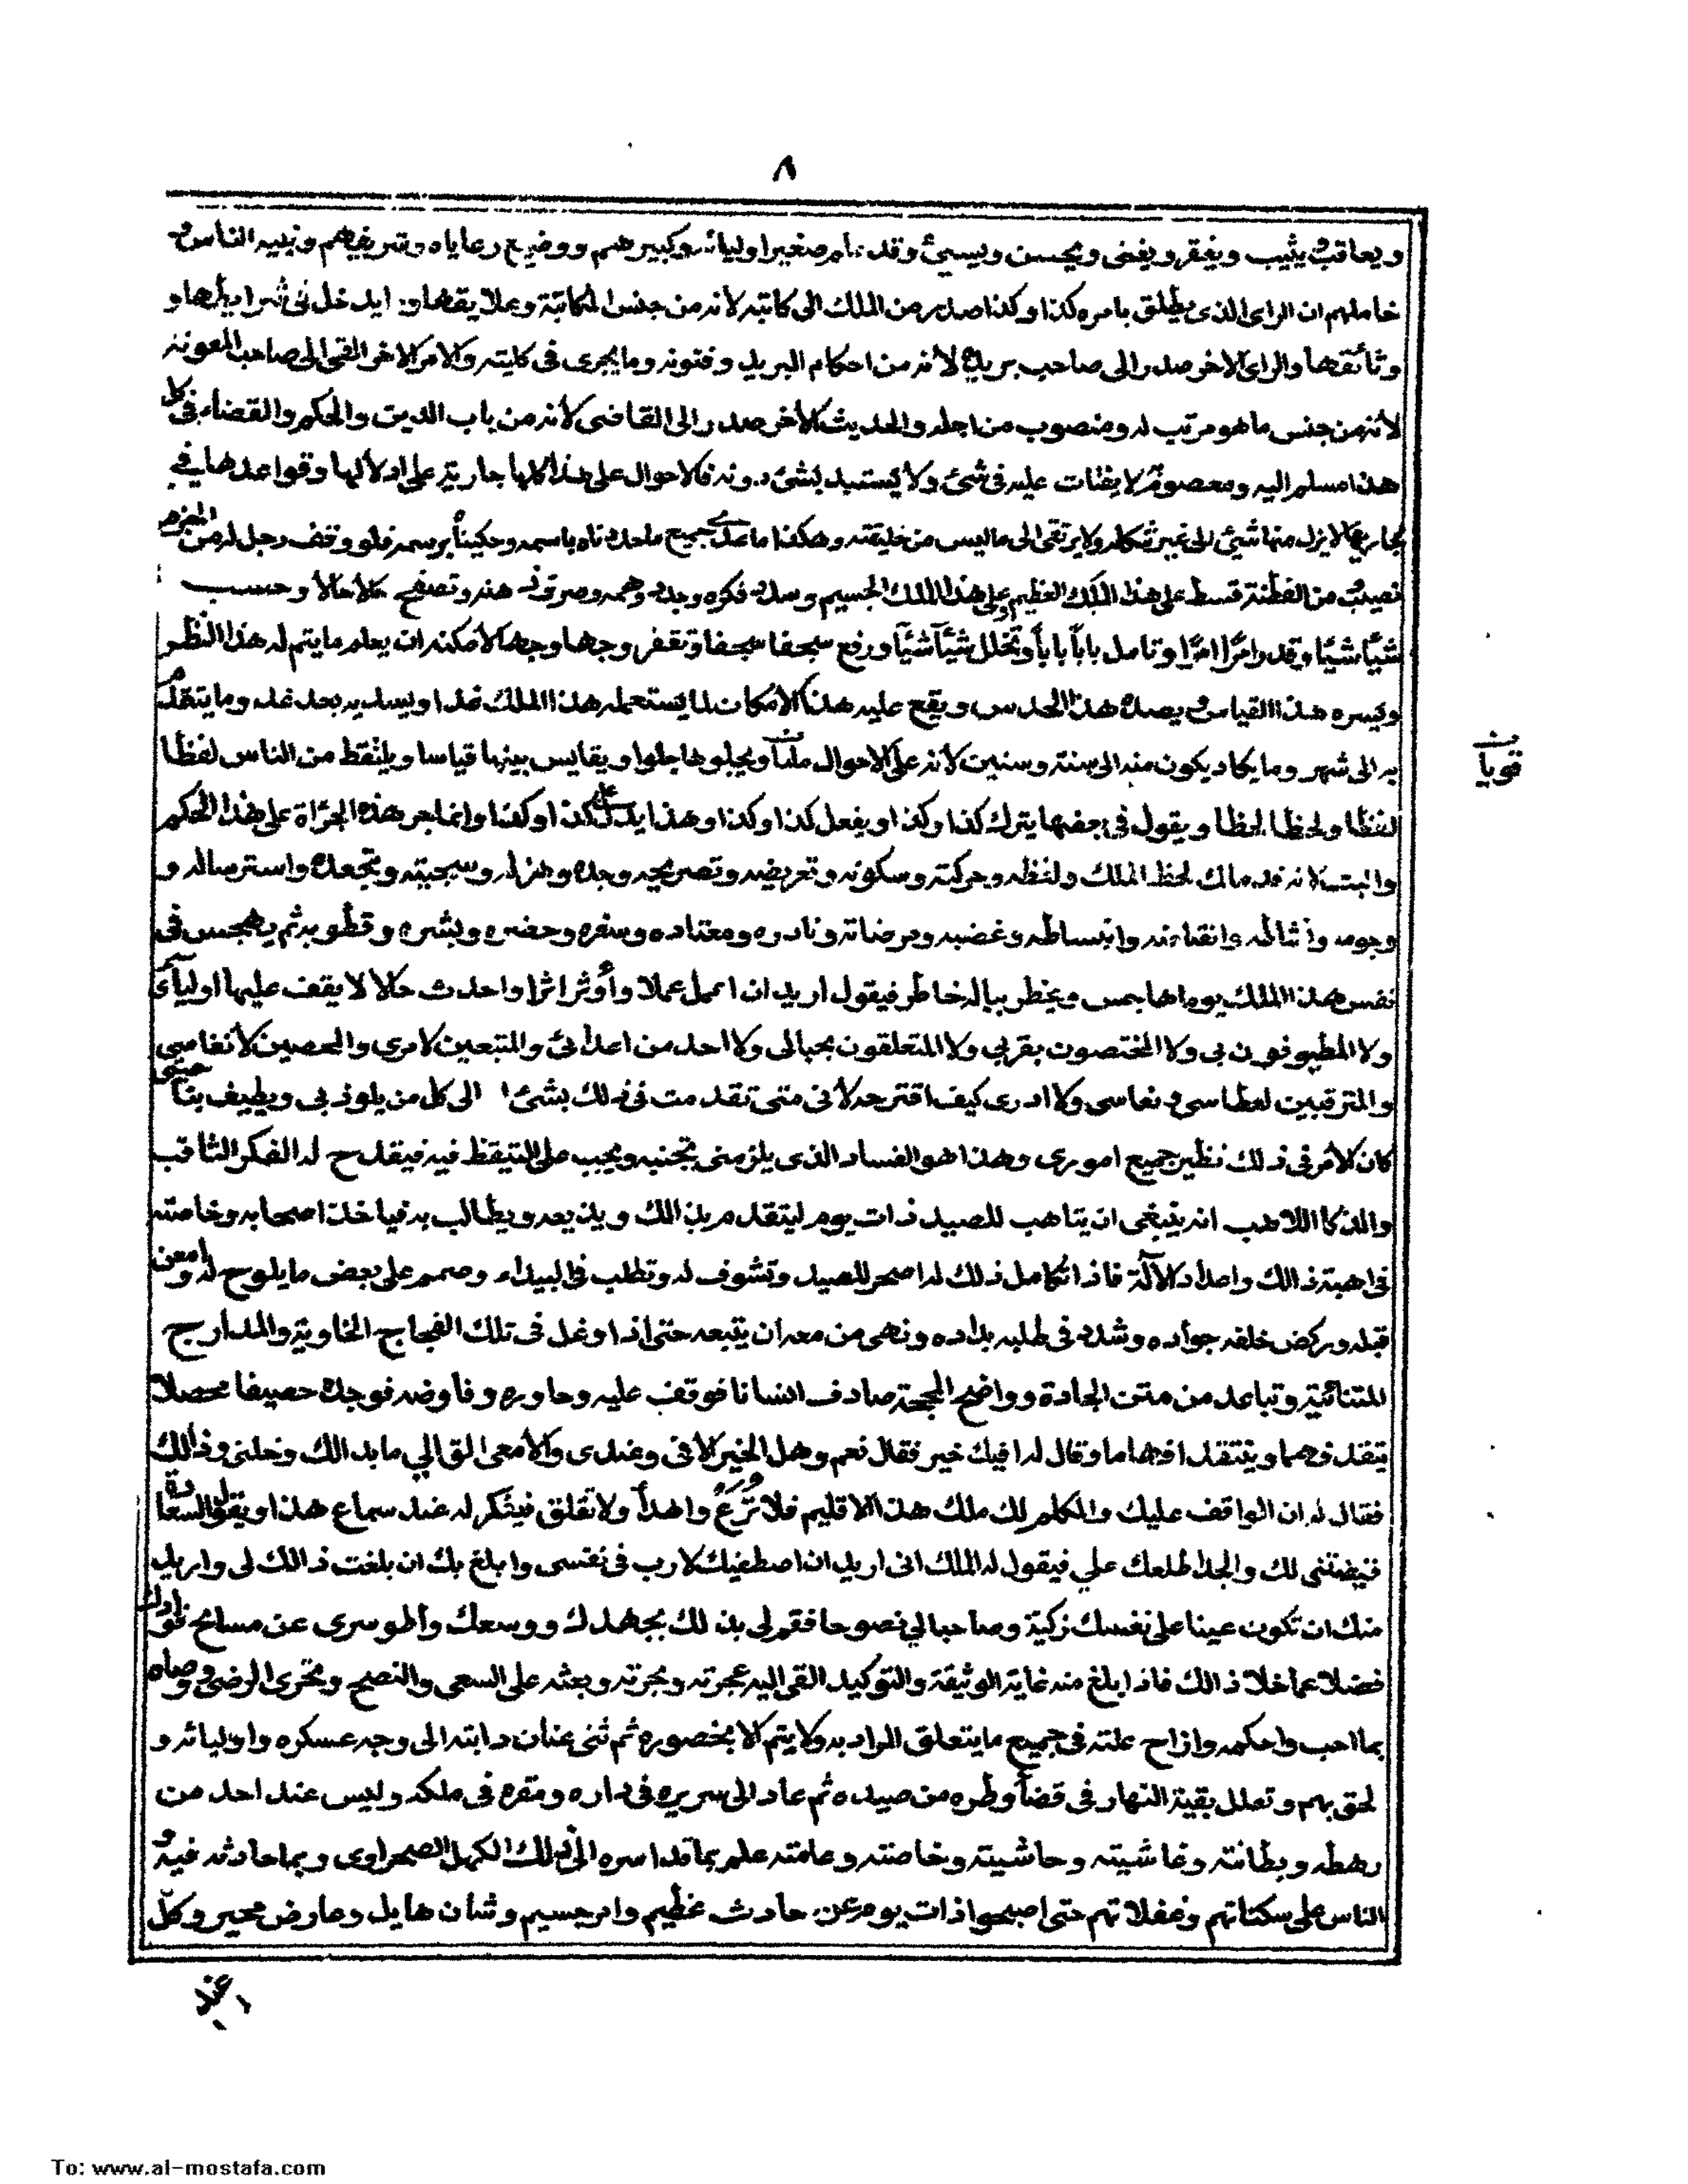 ٨
ويعاقب ويثيب ويفقر ويغنى ويحسن ويسيئ وقد علم صغير اوليائه وكبيرهم ووضيع رعاياه وشريفهم ونبيه الناس و
خاملهم ان الراى الذى يطلق بامره كذا وكذا صدر من الملك الى كاتبه لانه من جنس الكتابة وعلايقها و ايدخل فى شرايطها و
وثائقها والراى الاخر صدر الى صاحب بريده لانه من احكام البريد وفنونه وما يجرى فى كليته والامر الاخر القى الى صاحب المعونة
لانه من جنس ما هو مرتب له ومنصوب من اجله والحديث الاخر صدر الى القاضى لانه من باب الدين والحكم والقضاء فى كل
هذا مسلم اليه ومعصوب لا يفتات عليه فى شئ ولا يستبد بشئ دونه فالاحوال على هذا كلها جارية على ادلالها وقواعدها فى
مجاريها لا يزل منها شيئ الى غير شكله ولا يرتقى الى ما ليس من خليقته وهكذا ما عدى جميع ما حددناه باسمه وحكيناه برسمه فلو وقف رجل له من الحزم
نصيب ومن الفطنة قسط على هذا الملك العظيم وعلى هذا الملك الجسيم وسدد فكره وحدد وهمه وصرف ذهنه وتصفح حالا حالا وحسب
شيئا شيئا وقدر امرا امرا وتامل بابا بابا وتخلل شيئا شيئا ورفع سجفا سجفا وتقفر وجها وجها لامكنه ان يعلم ما يتم له هذا النظر
ويسره هذا القياس و يصده هذا الحدس ويقع عليه هذا الامكان لما يستعمله هذا الملك غدا ويسديه بعد غد وما يتقدم
به الى شهر وما يكاد يكون منه الى سنة وسنين لانه على الاحوال مليا ويجلوها جلوا ويقايس بينها قياسا ويلتقط من الناس لفظا
فوبا
لفظا ولحظا لحظا ويقول فى بعضها يترك كذا وكذا ويفعل كذا وكذا وهذا يدل على كذا وكذا وانما جر هذه الجراة على هذا الحكم
والبت لانه قد ملك لحظ الملك ولفظه وحركته وسكونه وتعريضه وتصريحه وجده وهزله وسجيته وتجعده واسترساله و
وجومه ونشاطه وانقباضه وانبساطه وغضبه ومرضاته ونادره ومعتاده وسفره وحضره وبشره وقطوبه ثم يهجس فى
نفس هذا الملك يوما هاجس ويخطر بباله خاطر فيقول اريد ان اعمل عملا وأوثر اثرا واحدث حالا لا يقف عليها اوليآئى
ولا المطيفون بى ولا المختصون بقربى ولا المتعلقون بحبالى ولا احد من اعدائى والمتبعين لامرى والمحصين لانفاسى
والمترقبين لعطاسى و نعاسى ولا ادرى كيف اقترحه لانى متى تقدمت فى ذلك بشئ الى كل من يلوذ بى ويطيف بناحيتى
كان الامر فى ذلك نظير جميع امورى وهذا هو الفساد الذى يلزمنى تجنبه ويجب على التيقظ فيه فيقدح له الفكر الثاقب
والذكا اللاهب انه ينبغى ان يتاهب للصيد ذات يوم ليتقدم بذالك ويذيعه ويطالب به فياخذ اصحابه وخاصته
فى اهبة ذالك واعداد الآلة فاذا تكامل ذلك له اصحر للصيد وتشوف له وتطلب فى البيداء وصمم على بعض ما يلوح له وامعن
قبله وركض خلفه جواده وشدد فى طلبه بداده ونهى من معه ان يتبعه حتى اذا اوغل فى تلك الفجاج الخاوية والمدارج
المتنائية وتباعد من متن الجادة وواضح المحجة صادف انسانا فوقف عليه وحاوره وفاوضه فوجده حصيفا محصلا
يتقد فهما ويفتقد افهاما وقال له افيك خير فقال نعم وهل الخير الا فى وعندى والا معى الق الي ما بدالك وخلنى وذالك
فقال له ان الواقف عليك والمكلم لك ملك هذا الاقليم فلا ترع واهدأ ولا تقلق فيكثر له عند سماع هذا ويقول السعادة
قيضتنى لك والجد اطلعك علي فيقول له الملك انى اريد ان اصطفيك لارب فى نفسى وابلغ بك ان بلغت ذالك لى واريد
منك ان تكون عينا على نفسك زكية وصاحبا لي نصوحا فقم لى بذلك بجهدك ووسعك واطو سرى عن مسانح فؤادك
فضلا عما خلا ذالك فاذا بلغ منه غاية الوثيقة والتوكيد القى اليه عجرته وبجرته وبعثه على السعى والنصح وتحرى الرضى ووصاه
بما احب واحكمه وازاح علته فى جميع ما يتعلق المراد به ولا يتم الا بحضوره ثم ثنى عنان دابته الى وجه عسكره واوليائه و
لحق بهم وتعلل بقية النهار فى قضآ وطره من صيده ثم عاد الى سريره فى داره ومقره فى ملكه وليس عند احد من
رهطه وبطانته وغاشيته وحاشيته وخاصته وعامته علم بما قد اسره الى ذلك الكهل الصحراوى وبما حادثه فيه و
الناس على سكناتهم وغفلاتهم حتى اصبحوا ذات يوم عن حادث عظيم وامر جسيم وشان هايل وعارض محير وكل
عند
To: www.al-mostafa.com